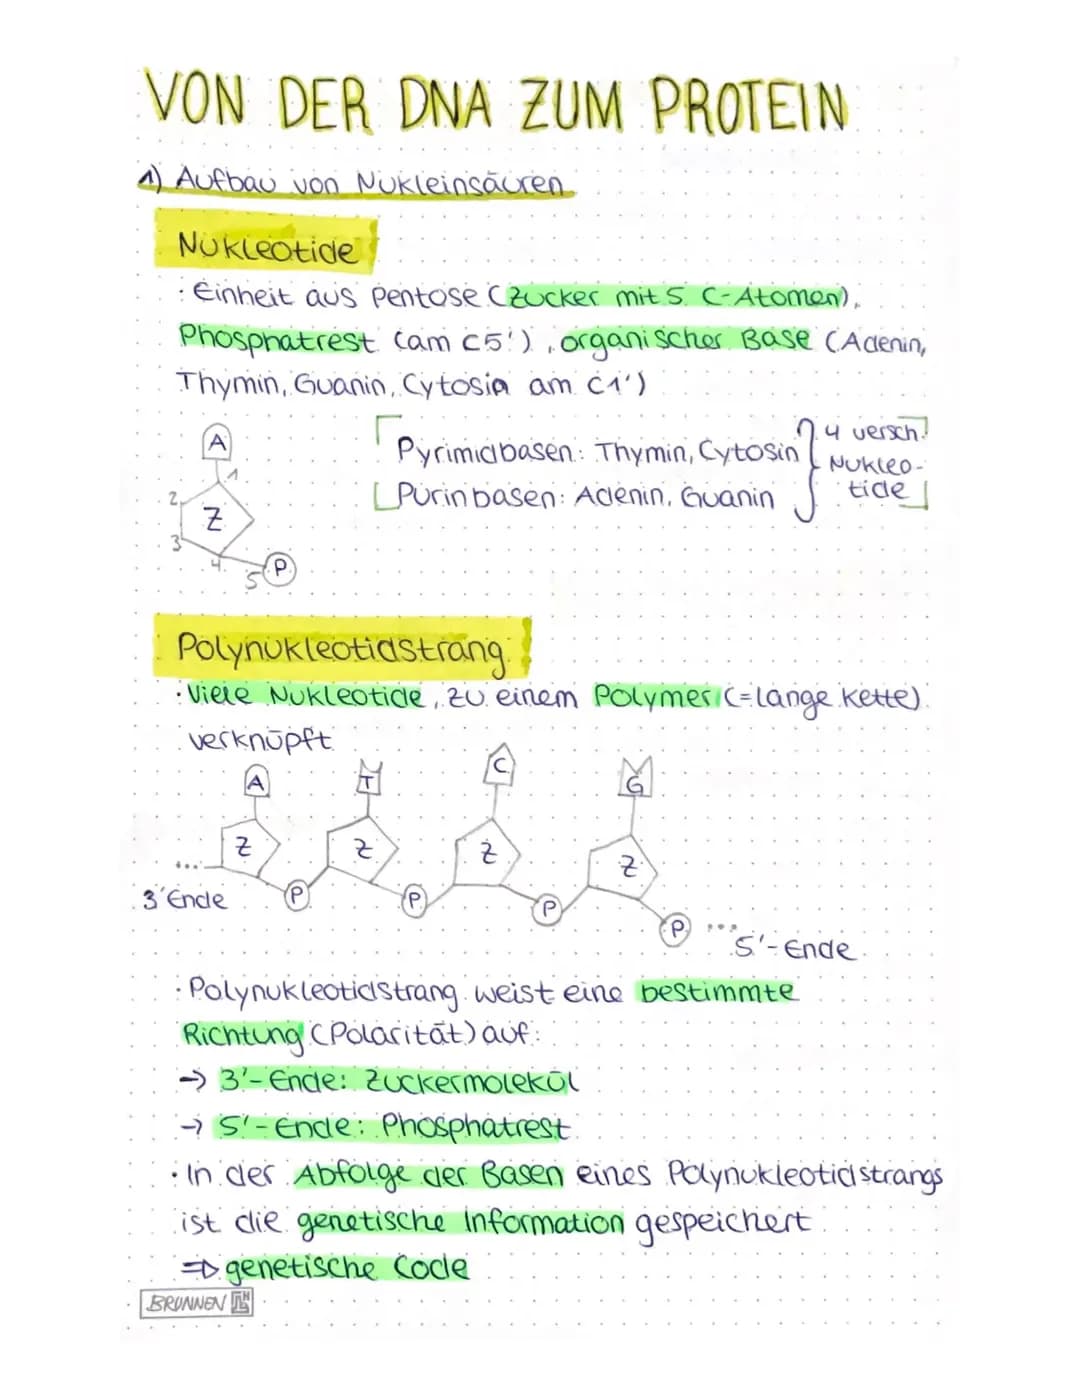 VON DER DNA ZUM PROTEIN
1) Aufbau von Nukleinsäuren
Nukleotide
· Einheit aus Pentose (Zucker mit 5 C-Atomen),
Phosphatrest (am C5'), organischer Base (Adenin,
Thymin, Guanin, Cytosin am C1')
A
1
2
Z
3
4
5
P
Pyrimidbasen: Thymin, Cytosin
Purinbasen: Adenin, Guanin
4 versch.
Nukleo-
tide
Polynukleotidstrang
· Viele Nukleotide, zu einem Polymer (=lange Kette)
verknüpft
A T C G
Z Z Z Z
...
3'Ende P P P P ...
5'-Ende
· Polynukleotidstrang weist eine bestimmte
Richtung (Polarität) auf:
→ 3'-Ende: Zuckermolekül
→ 5'-Ende: Phosphatrest
· In der Abfolge der Basen eines Polynukleotidstrangs
ist die genetische Information gespeichert
⇒ genetische Code
BRUNNEN